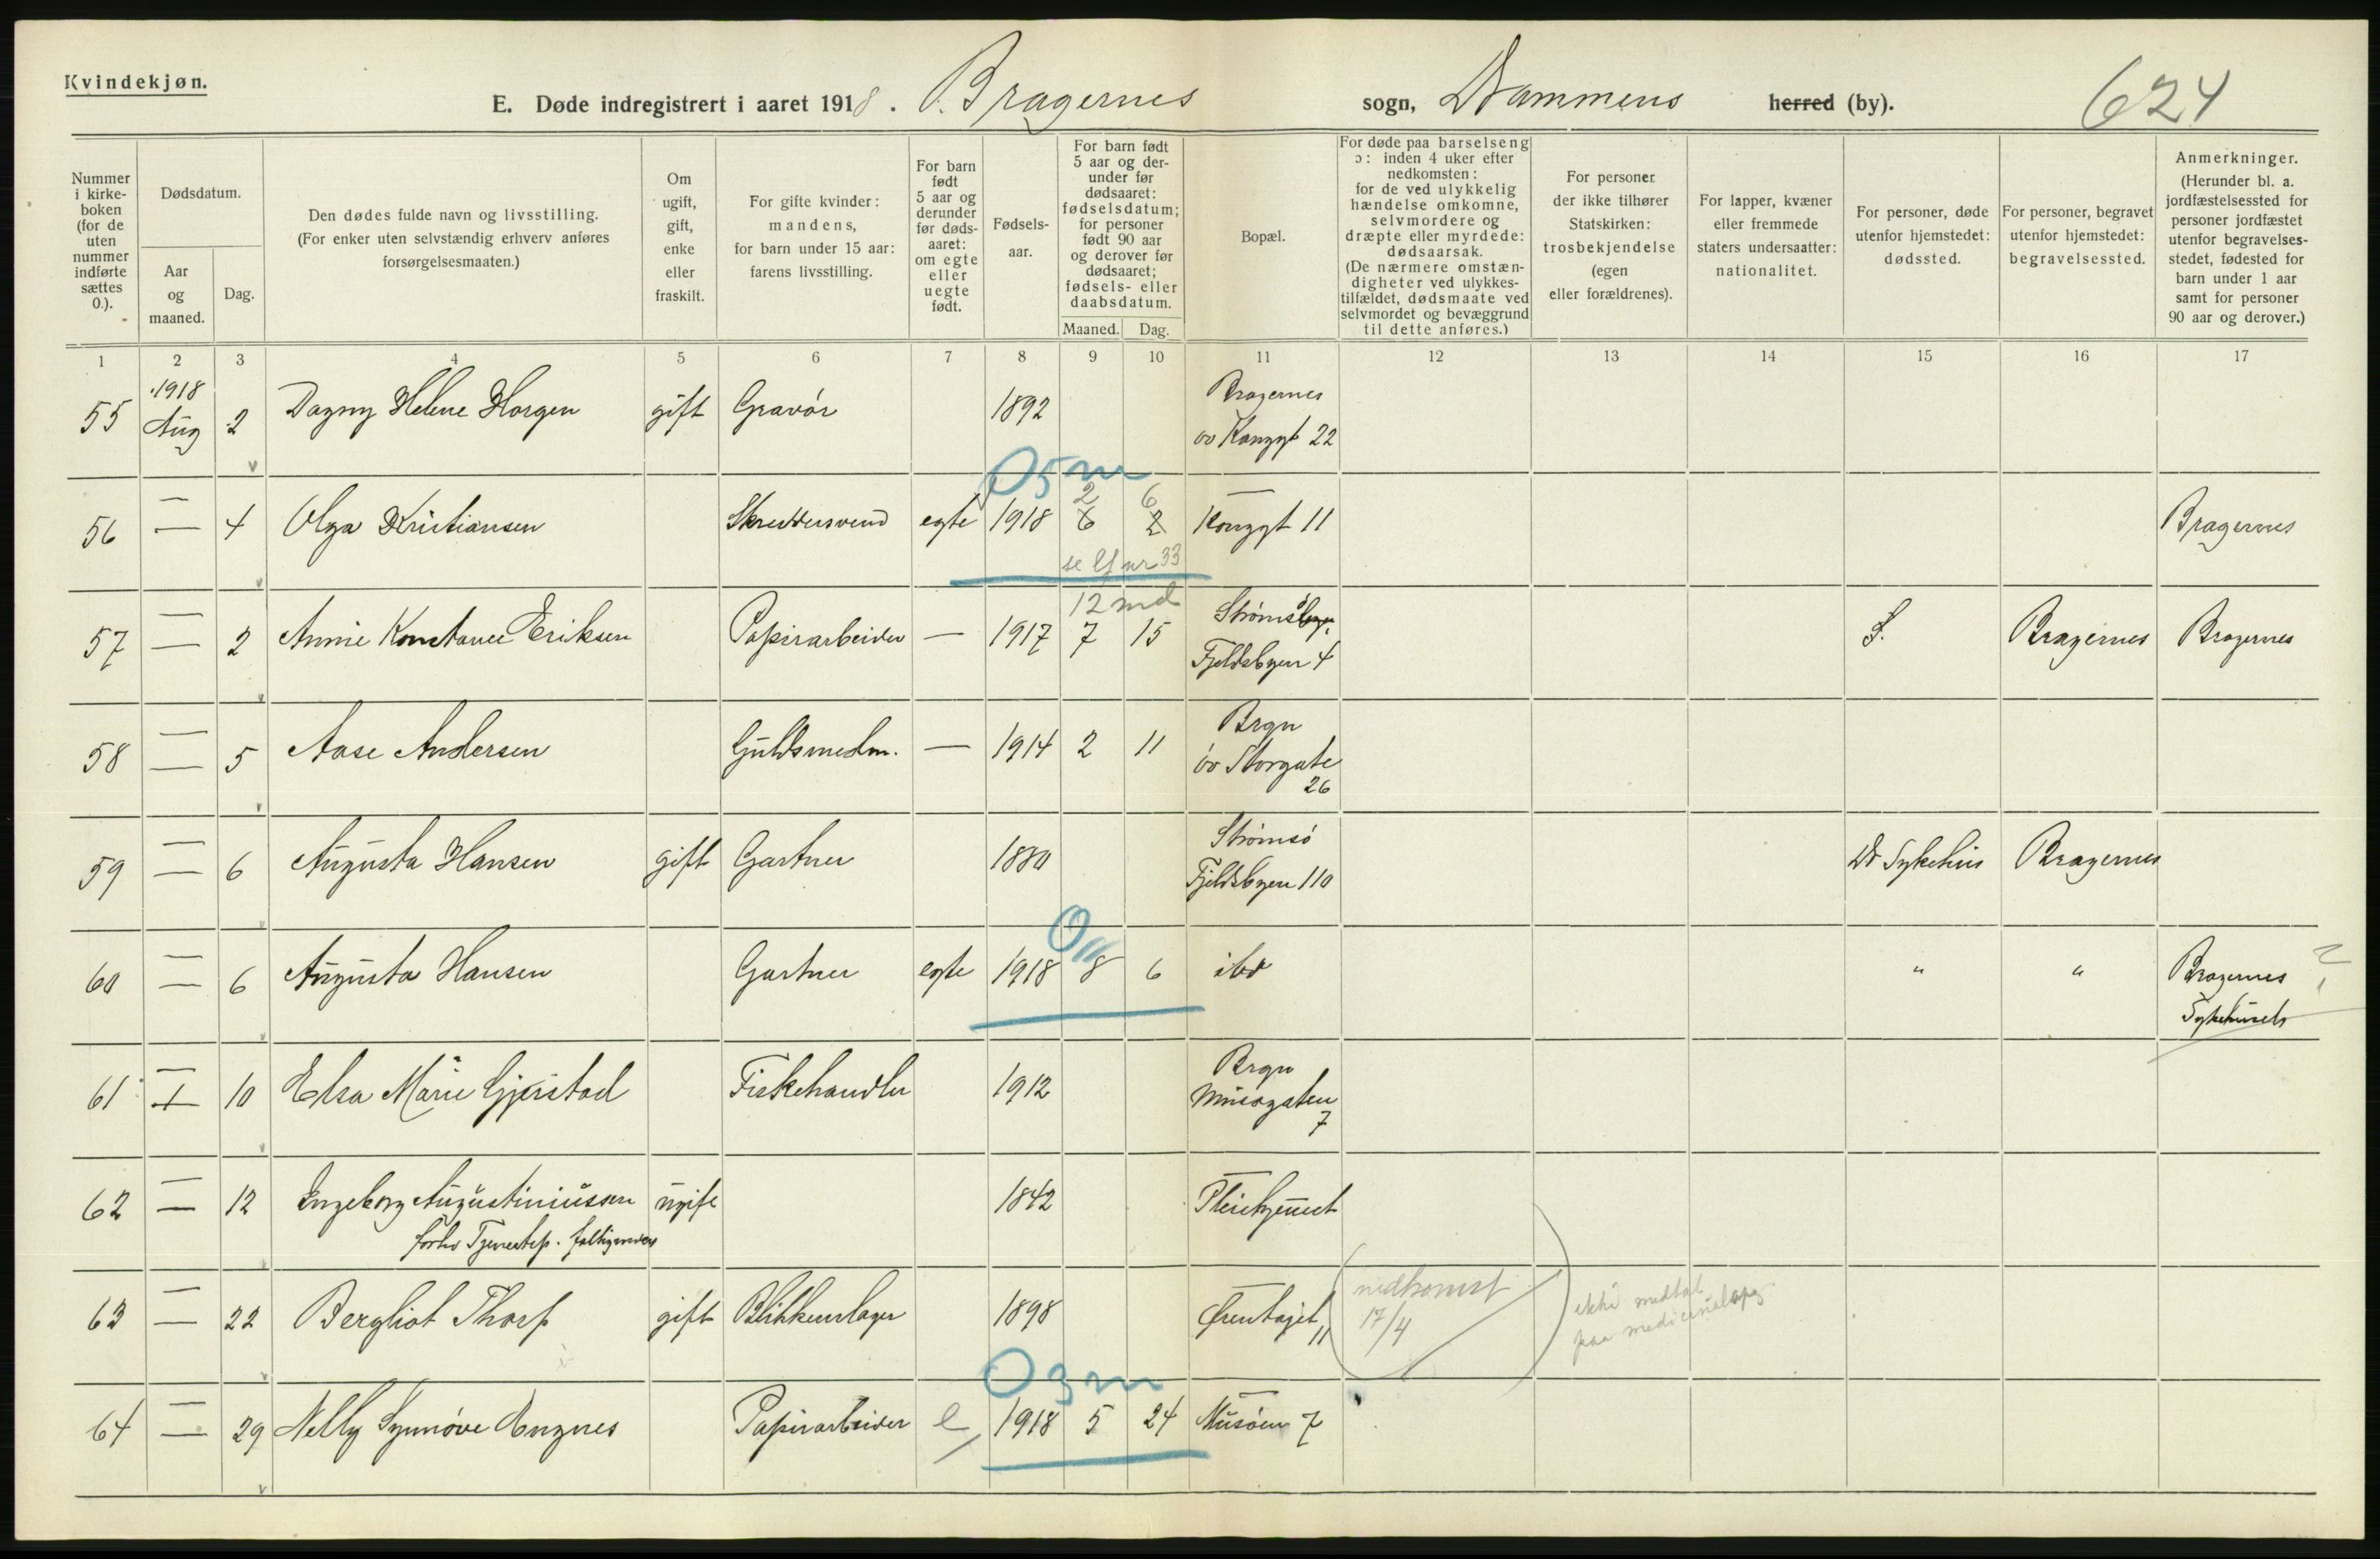 Kvindekjøn.
E. Døde indregistrert i aaret 1918. Bragernes sogn, Drammens herred (by).
624
Nummer i kirke-boken (for de uten nummer indførte sættes 0.).
Dødsdatum.
Aar og maaned.
Dag.
Den dødes fulde navn og livsstilling.
(For enker uten selvstændig erhverv anføres forsørgelsesmaaten.)
Om ugift, gift, enke eller fraskilt.
For gifte kvinder: mandens, for barn under 15 aar: farens livsstilling.
For barn født 5 aar og derunder før døds-aaret: om egte eller uegte født.
Fødsels-aar.
For barn født 5 aar og der-under før dødsaaret: fødselsdatum; for personer født 90 aar og derover før dødsaaret; fødsels- eller daabsdatum.
Maaned. Dag.
Bopæl.
For døde paa barselseng ɔ: inden 4 uker efter nedkomsten: for de ved ulykkelig hændelse omkomne, selvmordere og dræpte eller myrdede: dødsaarsak.
(De nærmere omstæn-digheter ved ulykkes-tilfældet, dødsmaate ved selvmordet og bevæggrund til dette anføres.)
For personer der ikke tilhører Statskirken: trosbekjendelse (egen eller forældrenes).
For lapper, kvæner eller fremmede staters undersaatter: nationalitet.
For personer, døde utenfor hjemstedet: dødssted.
For personer, begravet utenfor hjemstedet: begravelsessted.
Anmerkninger.
(Herunder bl. a. jordfæstelsessted for personer jordfæstet utenfor begravelses-stedet, fødested for barn under 1 aar samt for personer 90 aar og derover.)
1 2 3 4 5 6 7 8 9 10 11 12 13 14 15 16 17
55 1918 Aug 2 Dagny Helene Horgen gift Gravör 1892 Bragernes öv Kongegt 22
05 m
56 — 4 Olga Kristiansen Skreddersvend egte 1918 2 6 6 2 Kongegt 11 Bragernes
se lf nr 33
12 md
57 — 2 Annie Konstance Eriksen Papirarbeider — 1917 7 15 Strømsö Fjeldsbyen 4 S. Bragernes Bragernes
58 — 5 Aase Andersen Guldsmedm. — 1914 2 11 Brgn öv Storgate 26
59 — 6 Augusta Hansen gift Gartner 1880 Strömsö Fjeldsbyen 110 Dr Sykehus Bragernes
0
60 — 6 Augusta Hansen Gartner egte 1918 8 6 ibd " " Bragernes Sykehuset ?
61 — 10 Elsa Marie Gjerstad Fiskehandler 1912 Brgn Museogaten 7
62 — 12 Ingeborg Augustiniussen ugift 1842 Pleiehjemmet
forhv Tjenestep.
63 — 22 Bergliot Thorp gift Blikkenslager 1898 Ørentajet 11 nedkomst 17/4 ikke medtat paa medicinalopg
03 m
64 — 29 Nelly Synnøve Engnes Papirarbeider e 1918 5 24 Musöen 7